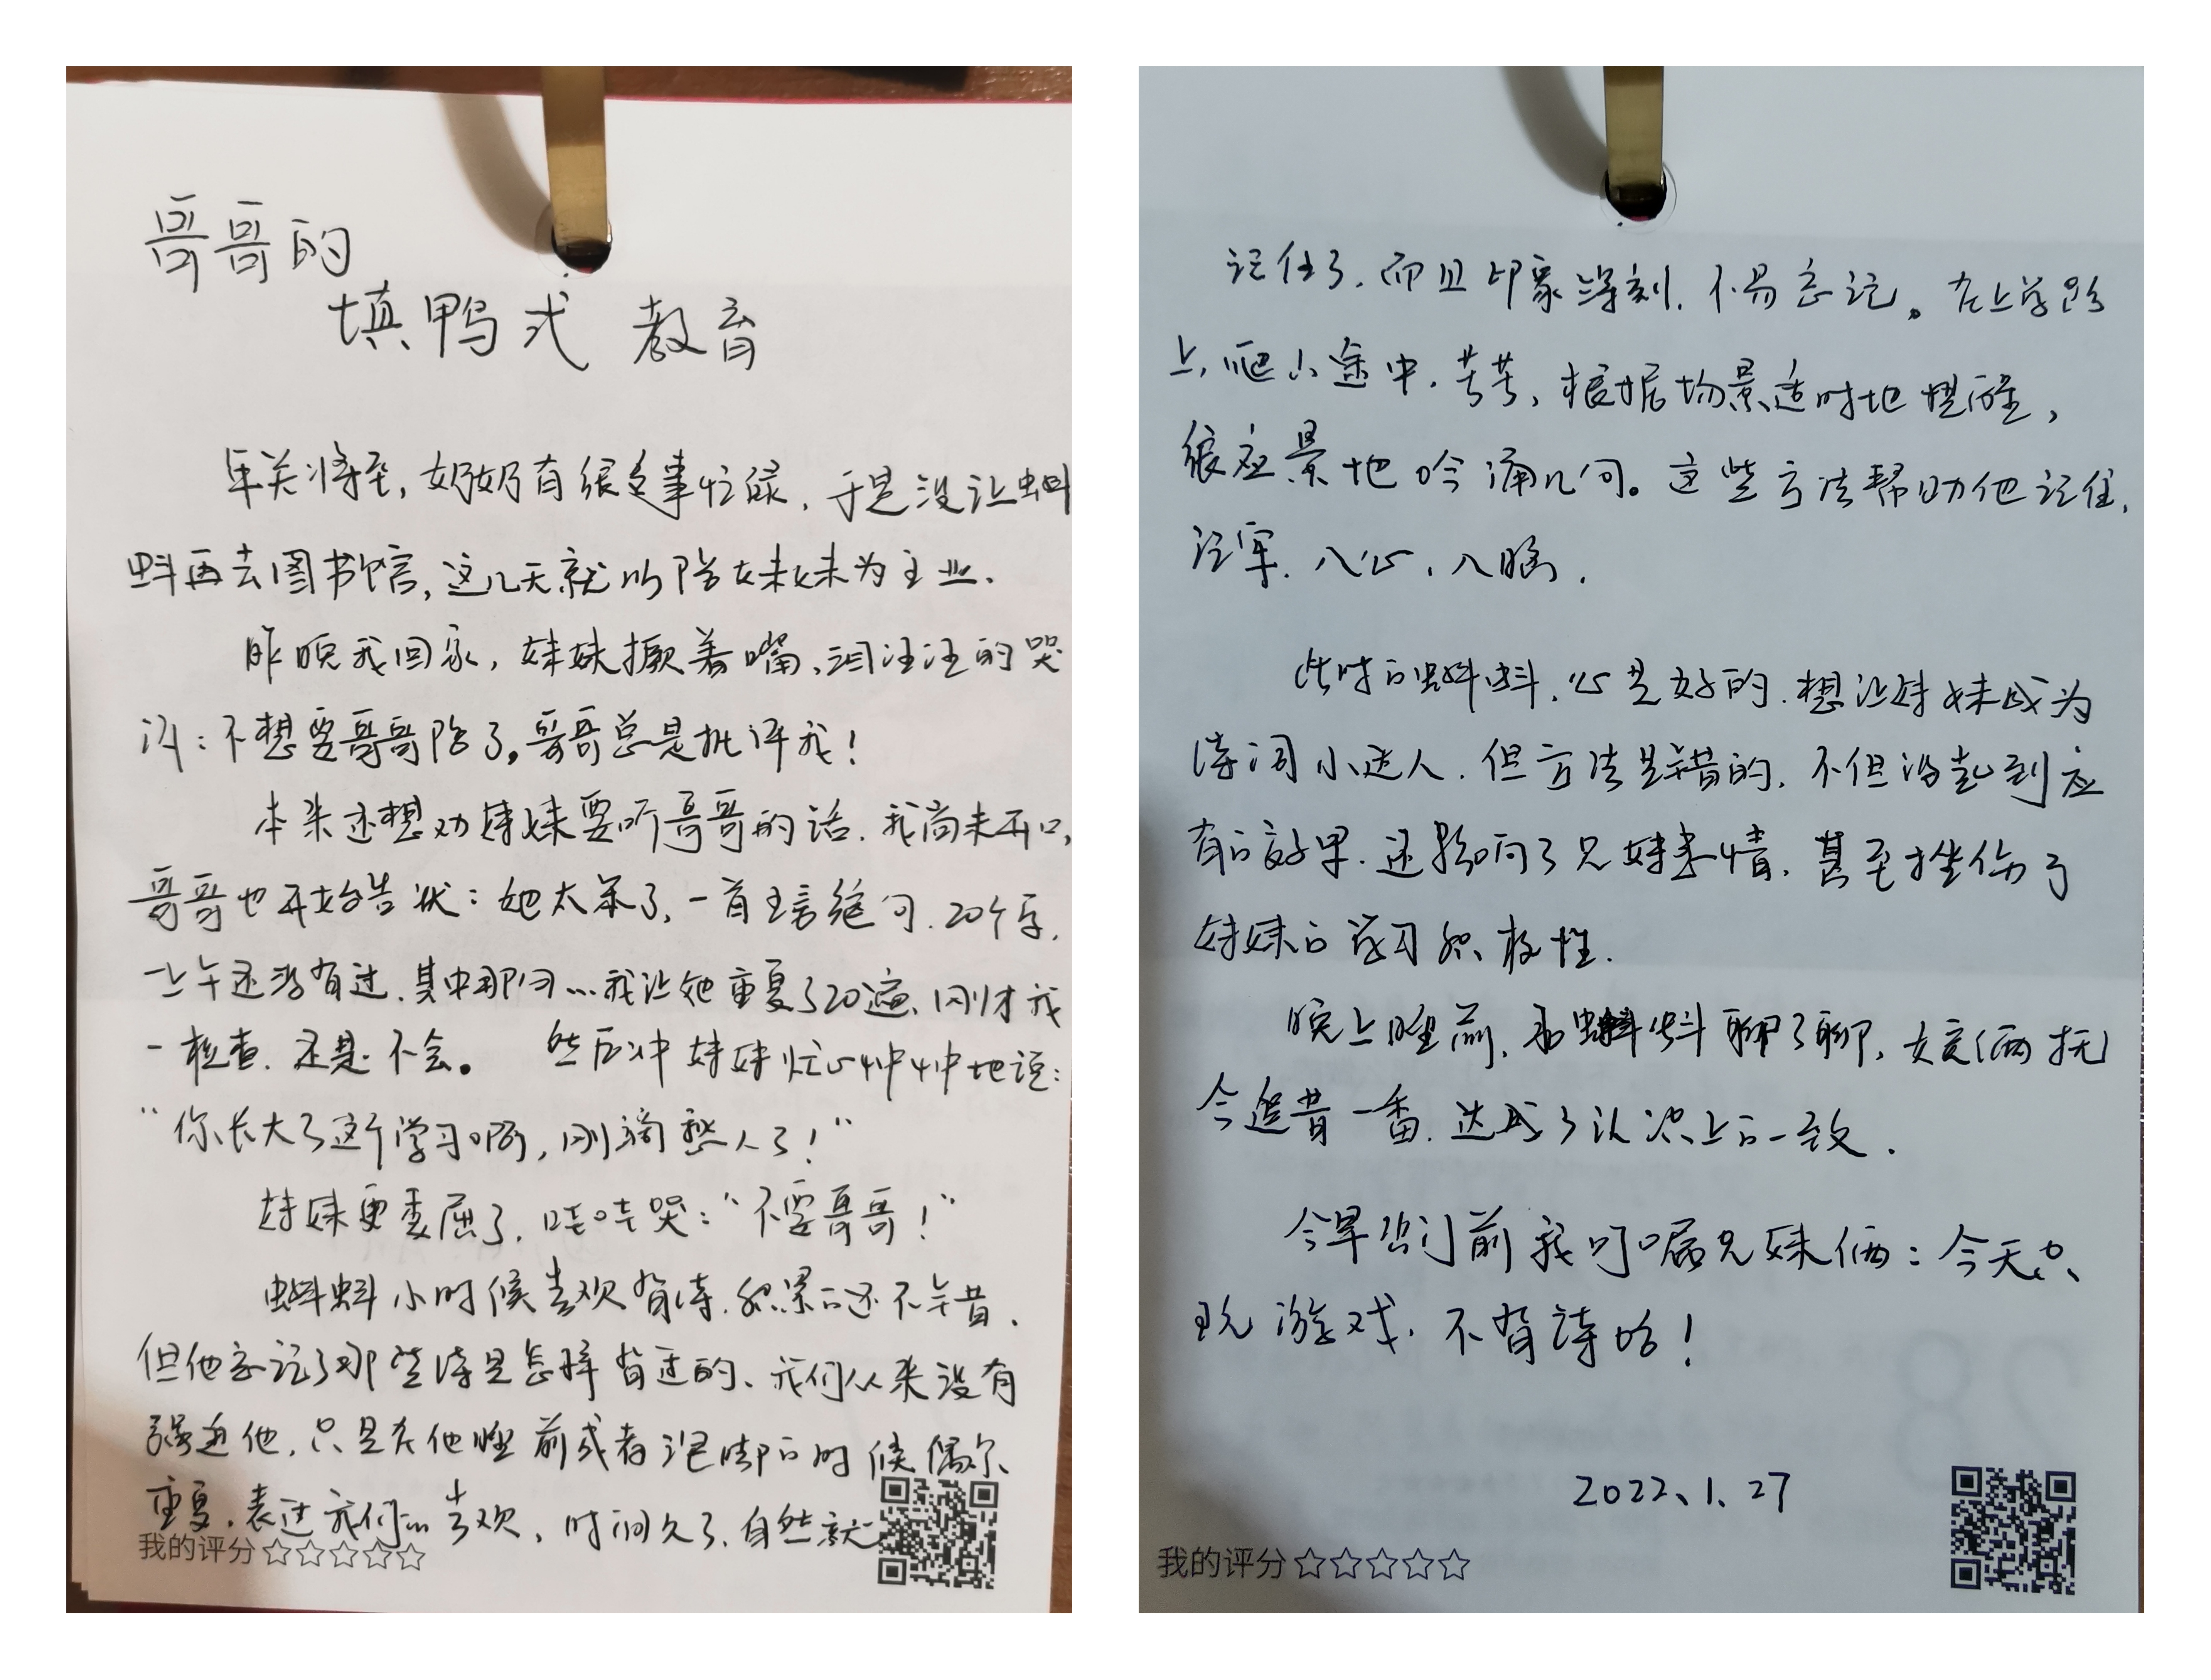 哥哥的
填鸭式 教育
年关将至，奶奶有很多事忙碌，于是没让蝌
蚪再去图书馆，这几天就以陪妹妹为主业．
昨晚我回家，妹妹撅着嘴，泪汪汪的哭
诉：不想要哥哥陪了。哥哥总是批评我！
本来还想劝妹妹要听哥哥的话．我尚未开口，
哥哥也开始告状：她太笨了，一首五言绝句．20个字．
一上午还没有过．其中那句…我让她重复了20遍、刚才我
一检查．还是不会。 然后冲妹妹忧心忡忡地说：
“你长大了这个学习啊，刚 愁人了！”
妹妹更委屈了，哇哇哭：“不要哥哥！”
蝌蚪小时候喜欢背诗．积累的还不错．
但他忘记了那些诗是怎样背过的、我们从来没有
强迫他，只是在他睡前或者泡脚的时候偶尔
重复，表达我们的喜欢，时间久了，自然就
我的评分☆☆☆☆☆
记住了．而且印象深刻．不易忘记。在上学路
上，爬山途中．等等，根据场景适时地提醒，
很应景地吟诵几句。这些方法帮助他记住，
记牢．入心．入脑．
此时的蝌蚪．心是好的．想让妹妹成为
诗词小达人．但方法是错的．不但没起到应
有的效果．还影响了兄妹亲情．甚至挫伤了
妹妹的学习积极性．
晚上睡前．和蝌蚪聊了聊．父俩抚
今追昔一番．达成了认识上的一致．
今早出门前我叮嘱兄妹俩：今天只
玩游戏．不背诗哈！
2022、1．27
我的评分☆☆☆☆☆